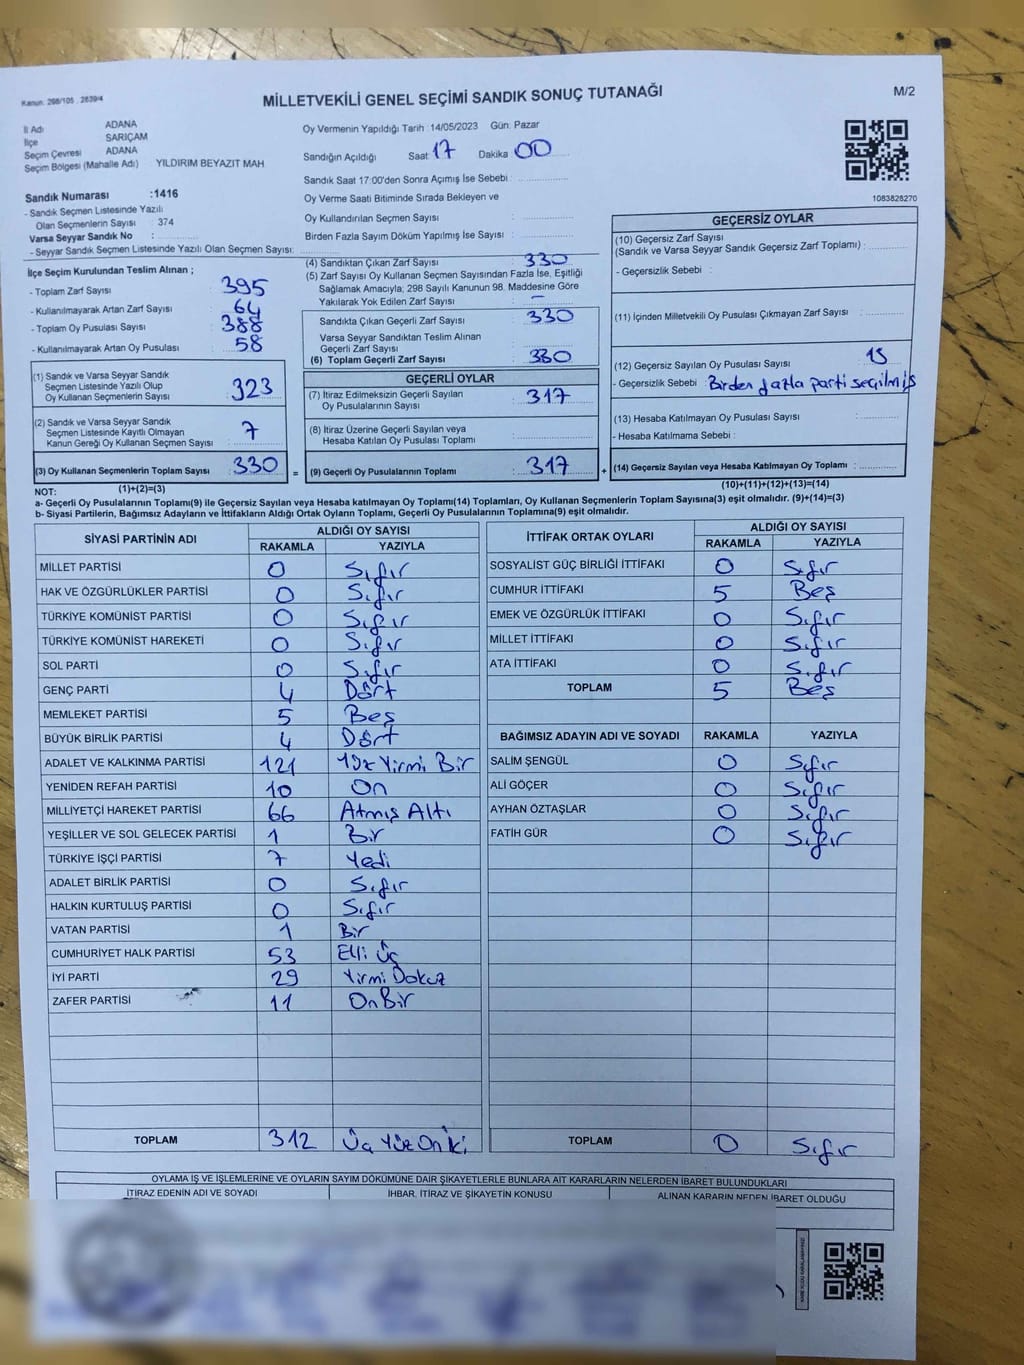 Kanun: 298/105 , 2839/4
MİLLETVEKİLİ GENEL SEÇİMİ SANDIK SONUÇ TUTANAĞI
M/2
İl Adı ADANA
İlçe SARIÇAM
Seçim Çevresi ADANA
Seçim Bölgesi (Mahalle Adı) YILDIRIM BEYAZIT MAH
Sandık Numarası :1416
- Sandık Seçmen Listesinde Yazılı
Olan Seçmenlerin Sayısı : 374
Varsa Seyyar Sandık No :
- Seyyar Sandık Seçmen Listesinde Yazılı Olan Seçmen Sayısı:
Oy Vermenin Yapıldığı Tarih :14/05/2023 Gün: Pazar
Sandığın Açıldığı Saat 17 Dakika 00
Sandık Saat 17:00'den Sonra Açımış İse Sebebi :
Oy Verme Saati Bitiminde Sırada Bekleyen ve
Oy Kullandırılan Seçmen Sayısı :
Birden Fazla Sayım Döküm Yapılmış İse Sayısı :
1083828270
İlçe Seçim Kurulundan Teslim Alınan ;
- Toplam Zarf Sayısı : 395
- Kullanılmayarak Artan Zarf Sayısı : 64
- Toplam Oy Pusulası Sayısı : 388
- Kullanılmayarak Artan Oy Pusulası : 58
(1) Sandık ve Varsa Seyyar Sandık
Seçmen Listesinde Yazılı Olup
Oy Kullanan Seçmenlerin Sayısı : 323
(2) Sandık ve Varsa Seyyar Sandık
Seçmen Listesinde Kayıtlı Olmayan
Kanun Gereği Oy Kullanan Seçmen Sayısı : 7
(3) Oy Kullanan Seçmenlerin Toplam Sayısı : 330
(1)+(2)=(3)
(4) Sandıktan Çıkan Zarf Sayısı : 330
(5) Zarf Sayısı Oy Kullanan Seçmen Sayısından Fazla İse, Eşitliği
Sağlamak Amacıyla; 298 Sayılı Kanunun 98. Maddesine Göre
Yakılarak Yok Edilen Zarf Sayısı : –
Sandıkta Çıkan Geçerli Zarf Sayısı : 330
Varsa Seyyar Sandıktan Teslim Alınan
Geçerli Zarf Sayısı :
(6) Toplam Geçerli Zarf Sayısı : 330
GEÇERLİ OYLAR
(7) İtiraz Edilmeksizin Geçerli Sayılan
Oy Pusulalarının Sayısı : 317
(8) İtiraz Üzerine Geçerli Sayılan veya
Hesaba Katılan Oy Pusulası Toplamı :
= (9) Geçerli Oy Pusulalarının Toplamı : 317
GEÇERSİZ OYLAR
(10) Geçersiz Zarf Sayısı
(Sandık ve Varsa Seyyar Sandık Geçersiz Zarf Toplamı) :
- Geçersizlik Sebebi :
(11) İçinden Milletvekili Oy Pusulası Çıkmayan Zarf Sayısı :
(12) Geçersiz Sayılan Oy Pusulası Sayısı : 13
- Geçersizlik Sebebi : Birden fazla parti seçilmiş
(13) Hesaba Katılmayan Oy Pusulası Sayısı :
- Hesaba Katılmama Sebebi :
+ (14) Geçersiz Sayılan veya Hesaba Katılmayan Oy Toplamı :
(10)+(11)+(12)+(13)=(14)
NOT:
a- Geçerli Oy Pusulalarının Toplamı(9) ile Geçersiz Sayılan veya Hesaba katılmayan Oy Toplamı(14) Toplamları, Oy Kullanan Seçmenlerin Toplam Sayısına(3) eşit olmalıdır. (9)+(14)=(3)
b- Siyasi Partilerin, Bağımsız Adayların ve İttifakların Aldığı Ortak Oyların Toplamı, Geçerli Oy Pusulalarının Toplamına(9) eşit olmalıdır.
SİYASİ PARTİNİN ADI ALDIĞI OY SAYISI
RAKAMLA YAZIYLA
MİLLET PARTİSİ 0 Sıfır
HAK VE ÖZGÜRLÜKLER PARTİSİ 0 Sıfır
TÜRKİYE KOMÜNİST PARTİSİ 0 Sıfır
TÜRKİYE KOMÜNİST HAREKETİ 0 Sıfır
SOL PARTİ 0 Sıfır
GENÇ PARTİ 4 Dört
MEMLEKET PARTİSİ 5 Beş
BÜYÜK BİRLİK PARTİSİ 4 Dört
ADALET VE KALKINMA PARTİSİ 121 Yüz Yirmi Bir
YENİDEN REFAH PARTİSİ 10 On
MİLLİYETÇİ HAREKET PARTİSİ 66 Atmış Altı
YEŞİLLER VE SOL GELECEK PARTİSİ 1 Bir
TÜRKİYE İŞÇİ PARTİSİ 7 Yedi
ADALET BİRLİK PARTİSİ 0 Sıfır
HALKIN KURTULUŞ PARTİSİ 0 Sıfır
VATAN PARTİSİ 1 Bir
CUMHURİYET HALK PARTİSİ 53 Elli Üç
İYİ PARTİ 29 Yirmi Dokuz
ZAFER PARTİSİ 11 On Bir
TOPLAM 312 Üç Yüz On İki
İTTİFAK ORTAK OYLARI ALDIĞI OY SAYISI
RAKAMLA YAZIYLA
SOSYALİST GÜÇ BİRLİĞİ İTTİFAKI 0 Sıfır
CUMHUR İTTİFAKI 5 Beş
EMEK VE ÖZGÜRLÜK İTTİFAKI 0 Sıfır
MİLLET İTTİFAKI 0 Sıfır
ATA İTTİFAKI 0 Sıfır
TOPLAM 5 Beş
BAĞIMSIZ ADAYIN ADI VE SOYADI RAKAMLA YAZIYLA
SALİM ŞENGÜL 0 Sıfır
ALİ GÖÇER 0 Sıfır
AYHAN ÖZTAŞLAR 0 Sıfır
FATİH GÜR 0 Sıfır
TOPLAM 0 Sıfır
OYLAMA İŞ VE İŞLEMLERİNE VE OYLARIN SAYIM DÖKÜMÜNE DAİR ŞİKAYETLERLE BUNLARA AİT KARARLARIN NELERDEN İBARET BULUNDUKLARI
İTİRAZ EDENİN ADI VE SOYADI İHBAR, İTİRAZ VE ŞİKAYETİN KONUSU ALINAN KARARIN NEDEN İBARET OLDUĞU